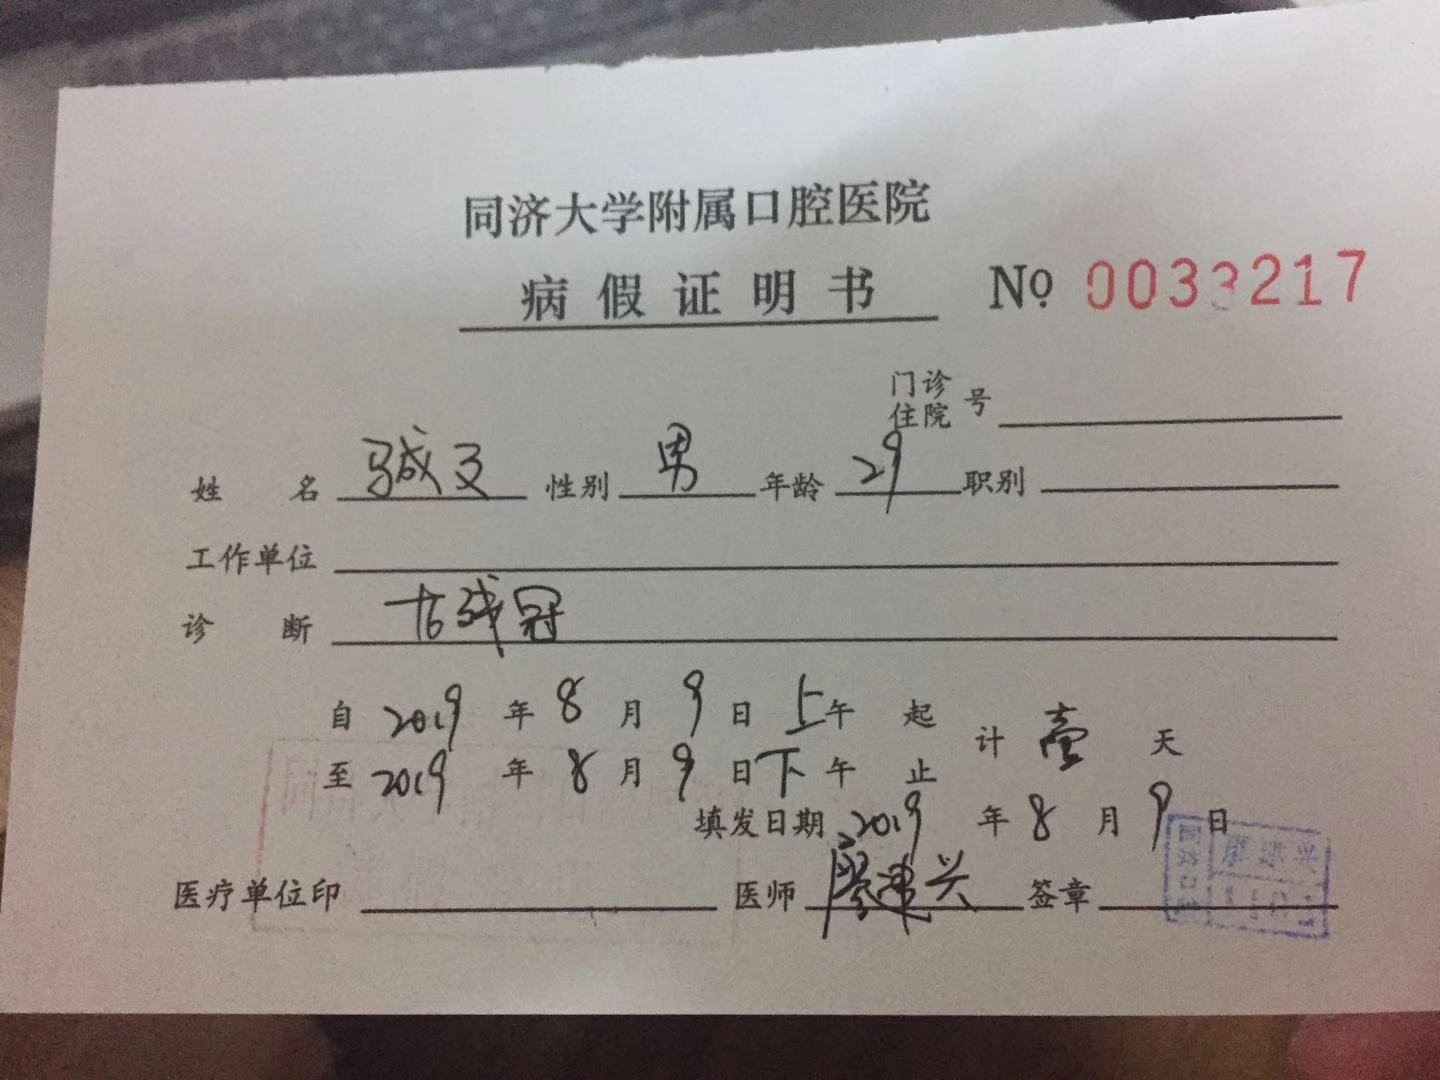 同济大学附属口腔医院
病假证明书 No 0033217
门诊住院号
姓名 性别 男 年龄 29 职别
工作单位
诊断 残冠
自 2019 年 8 月 9 日 上午 起
至 2019 年 8 月 9 日 下午 止 计 壹 天
填发日期 2019 年 8 月 9 日
医疗单位印 医师 廖建兴 签章